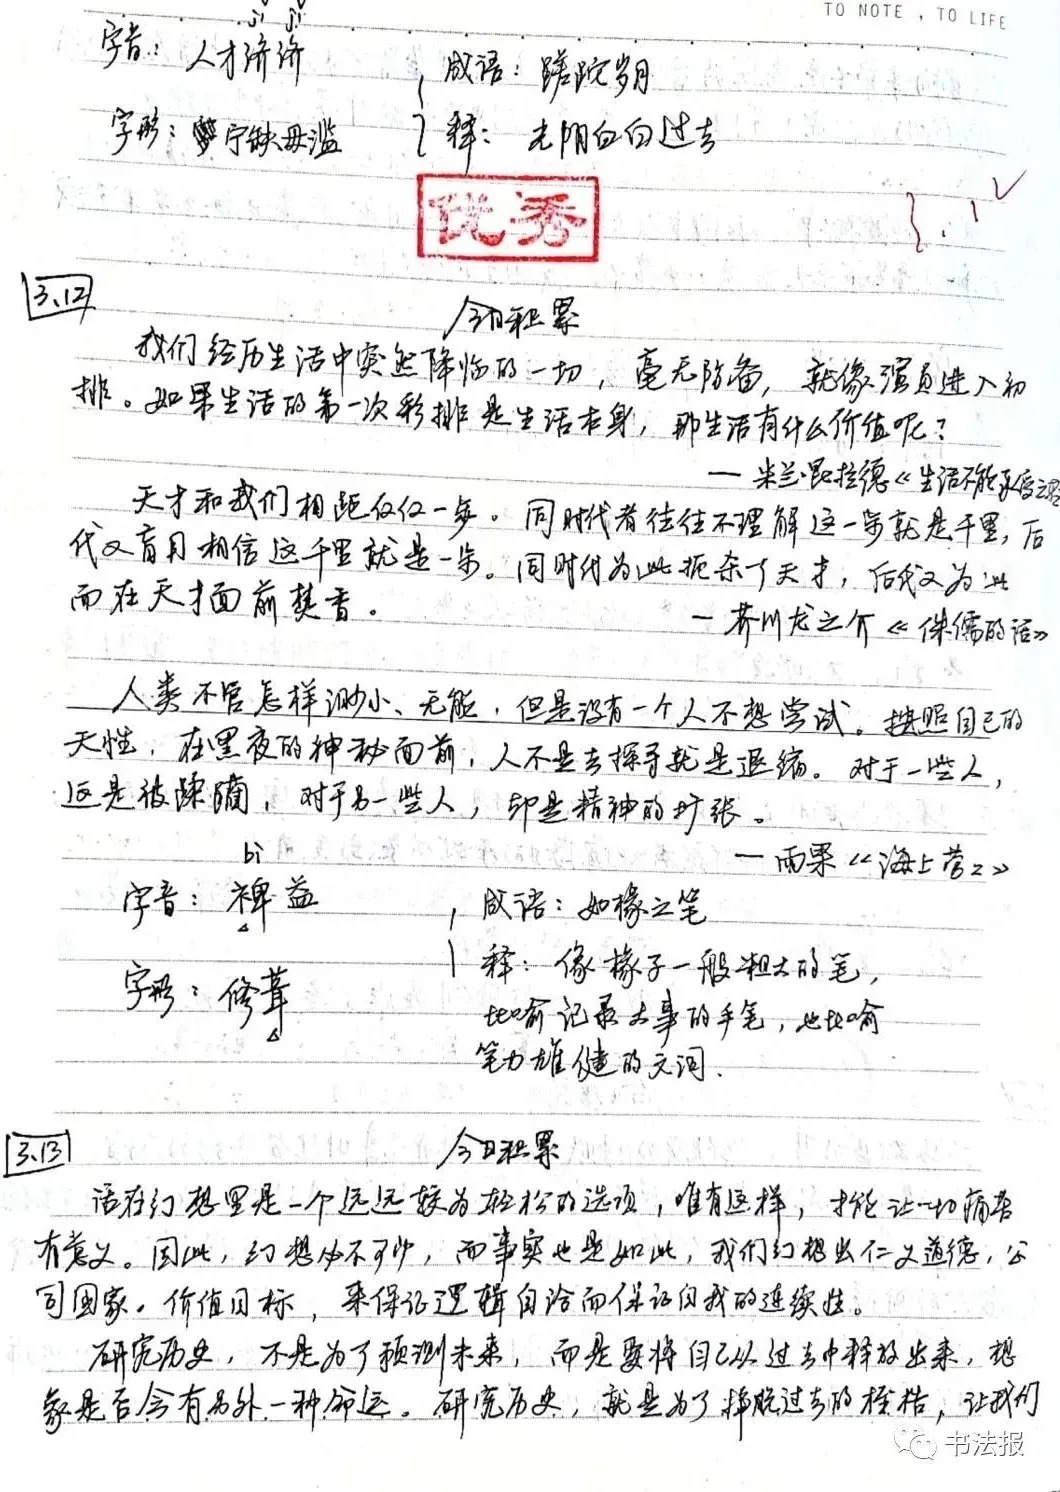 TO NOTE , TO LIFE
jǐ jǐ
字音： 人才济济
成语：蹉跎岁月
字形： 宁缺毋滥
释： 光阴白白过去
优秀
3.12
今日积累
我们经历生活中突然降临的一切，毫无防备，就像演员进入初
排。如果生活的第一次彩排是生活本身，那生活有什么价值呢？
— 米兰·昆拉德《生活不能承受之
天才和我们相距仅仅一步。同时代者往往不理解这一步就是千里，后
代又盲目相信这千里就是一步。同时代为此扼杀了天才，后代又为此
而在天才面前焚香。
— 芥川龙之介《侏儒的话》
人类不管怎样渺小、无能，但是没有一个人不想尝试。按照自己的
天性，在黑夜的神秘面前，人不是去探寻就是退缩。对于一些人，
这是被蒙蔽，对于另一些人，却是精神的扩张。
— 雨果《海上劳工》
bì
字音：裨益
成语：如椽之笔
字形：修葺
释：像椽子一般粗大的笔，
比喻记录大事的手笔，也比喻
笔力雄健的文词.
3.13
今日积累
活在幻想里是一个远远较为轻松的选项，唯有这样，才能让一切痛苦
有意义。因此，幻想必不可少，而事实也是如此，我们幻想出仁义道德，公
司国家。价值目标，来保证逻辑自洽而保证自我的连续性。
研究历史，不是为了预测未来，而是要将自己从过去中释放出来，想
象是否会有另外一种命运。研究历史，就是为了挣脱过去的桎梏，让我们
书法报